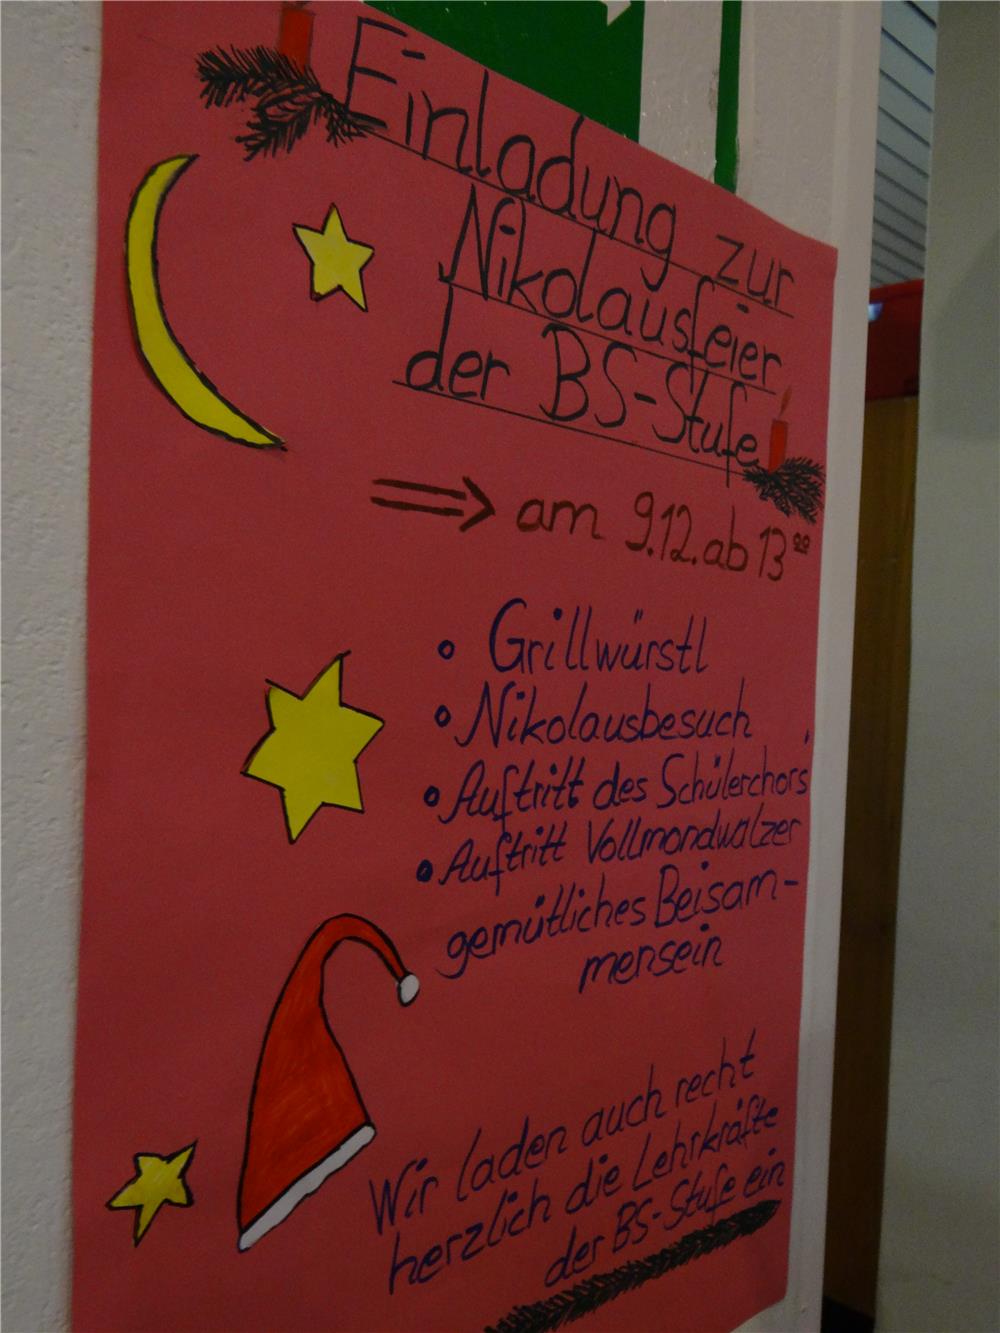 Einladung zur
Nikolausfeier
der BS-Stufe
⇒ am 9.12. ab 13⁰⁰
• Grillwürstl
• Nikolausbesuch
• Auftritt des Schülerchors
• Auftritt Vollmondwalzer
gemütliches Beisam-
mensein
Wir laden auch recht
herzlich die Lehrkräfte
der BS-Stufe ein